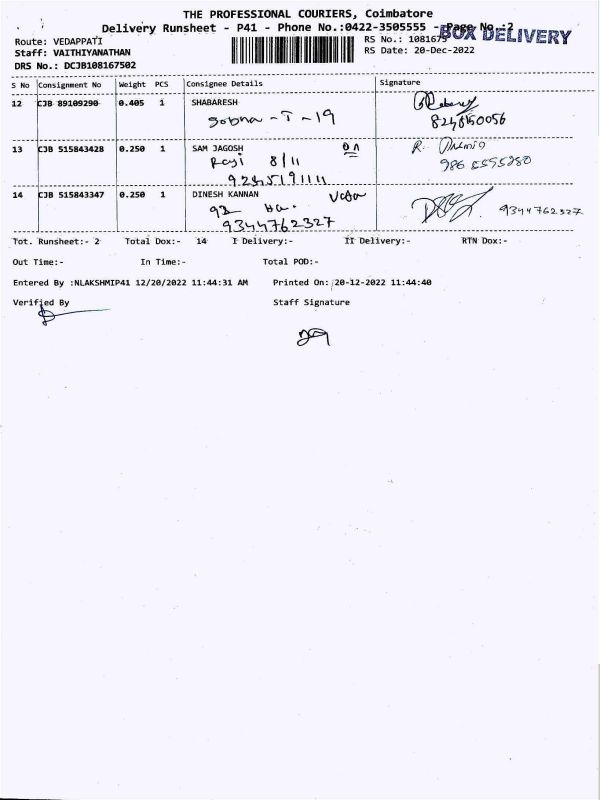 THE PROFESSIONAL COURIERS, Coimbatore
Delivery Runsheet - P41 - Phone No.:0422-3505555 -Page No.:2
BOX DELIVERY
Route: VEDAPPATI
RS No.: 1081675
Staff: VAITHIYANATHAN
RS Date: 20-Dec-2022
DRS No.: DCJB108167502
S No Consignment No Weight PCS Consignee Details Signature
12 CJB 89109290 0.405 1 SHABARESH
Sobha - T - 19
8248150056
13 CJB 515843428 0.250 1 SAM JAGOSH
Raji 8/11
14 CJB 515843347 0.250 1 DINESH KANNAN
9344762327
9344762327
Tot. Runsheet:- 2 Total Dox:- 14 I Delivery:- II Delivery:- RTN Dox:-
Out Time:- In Time:- Total POD:-
Entered By :NLAKSHMIP41 12/20/2022 11:44:31 AM Printed On: 20-12-2022 11:44:40
Verified By Staff Signature